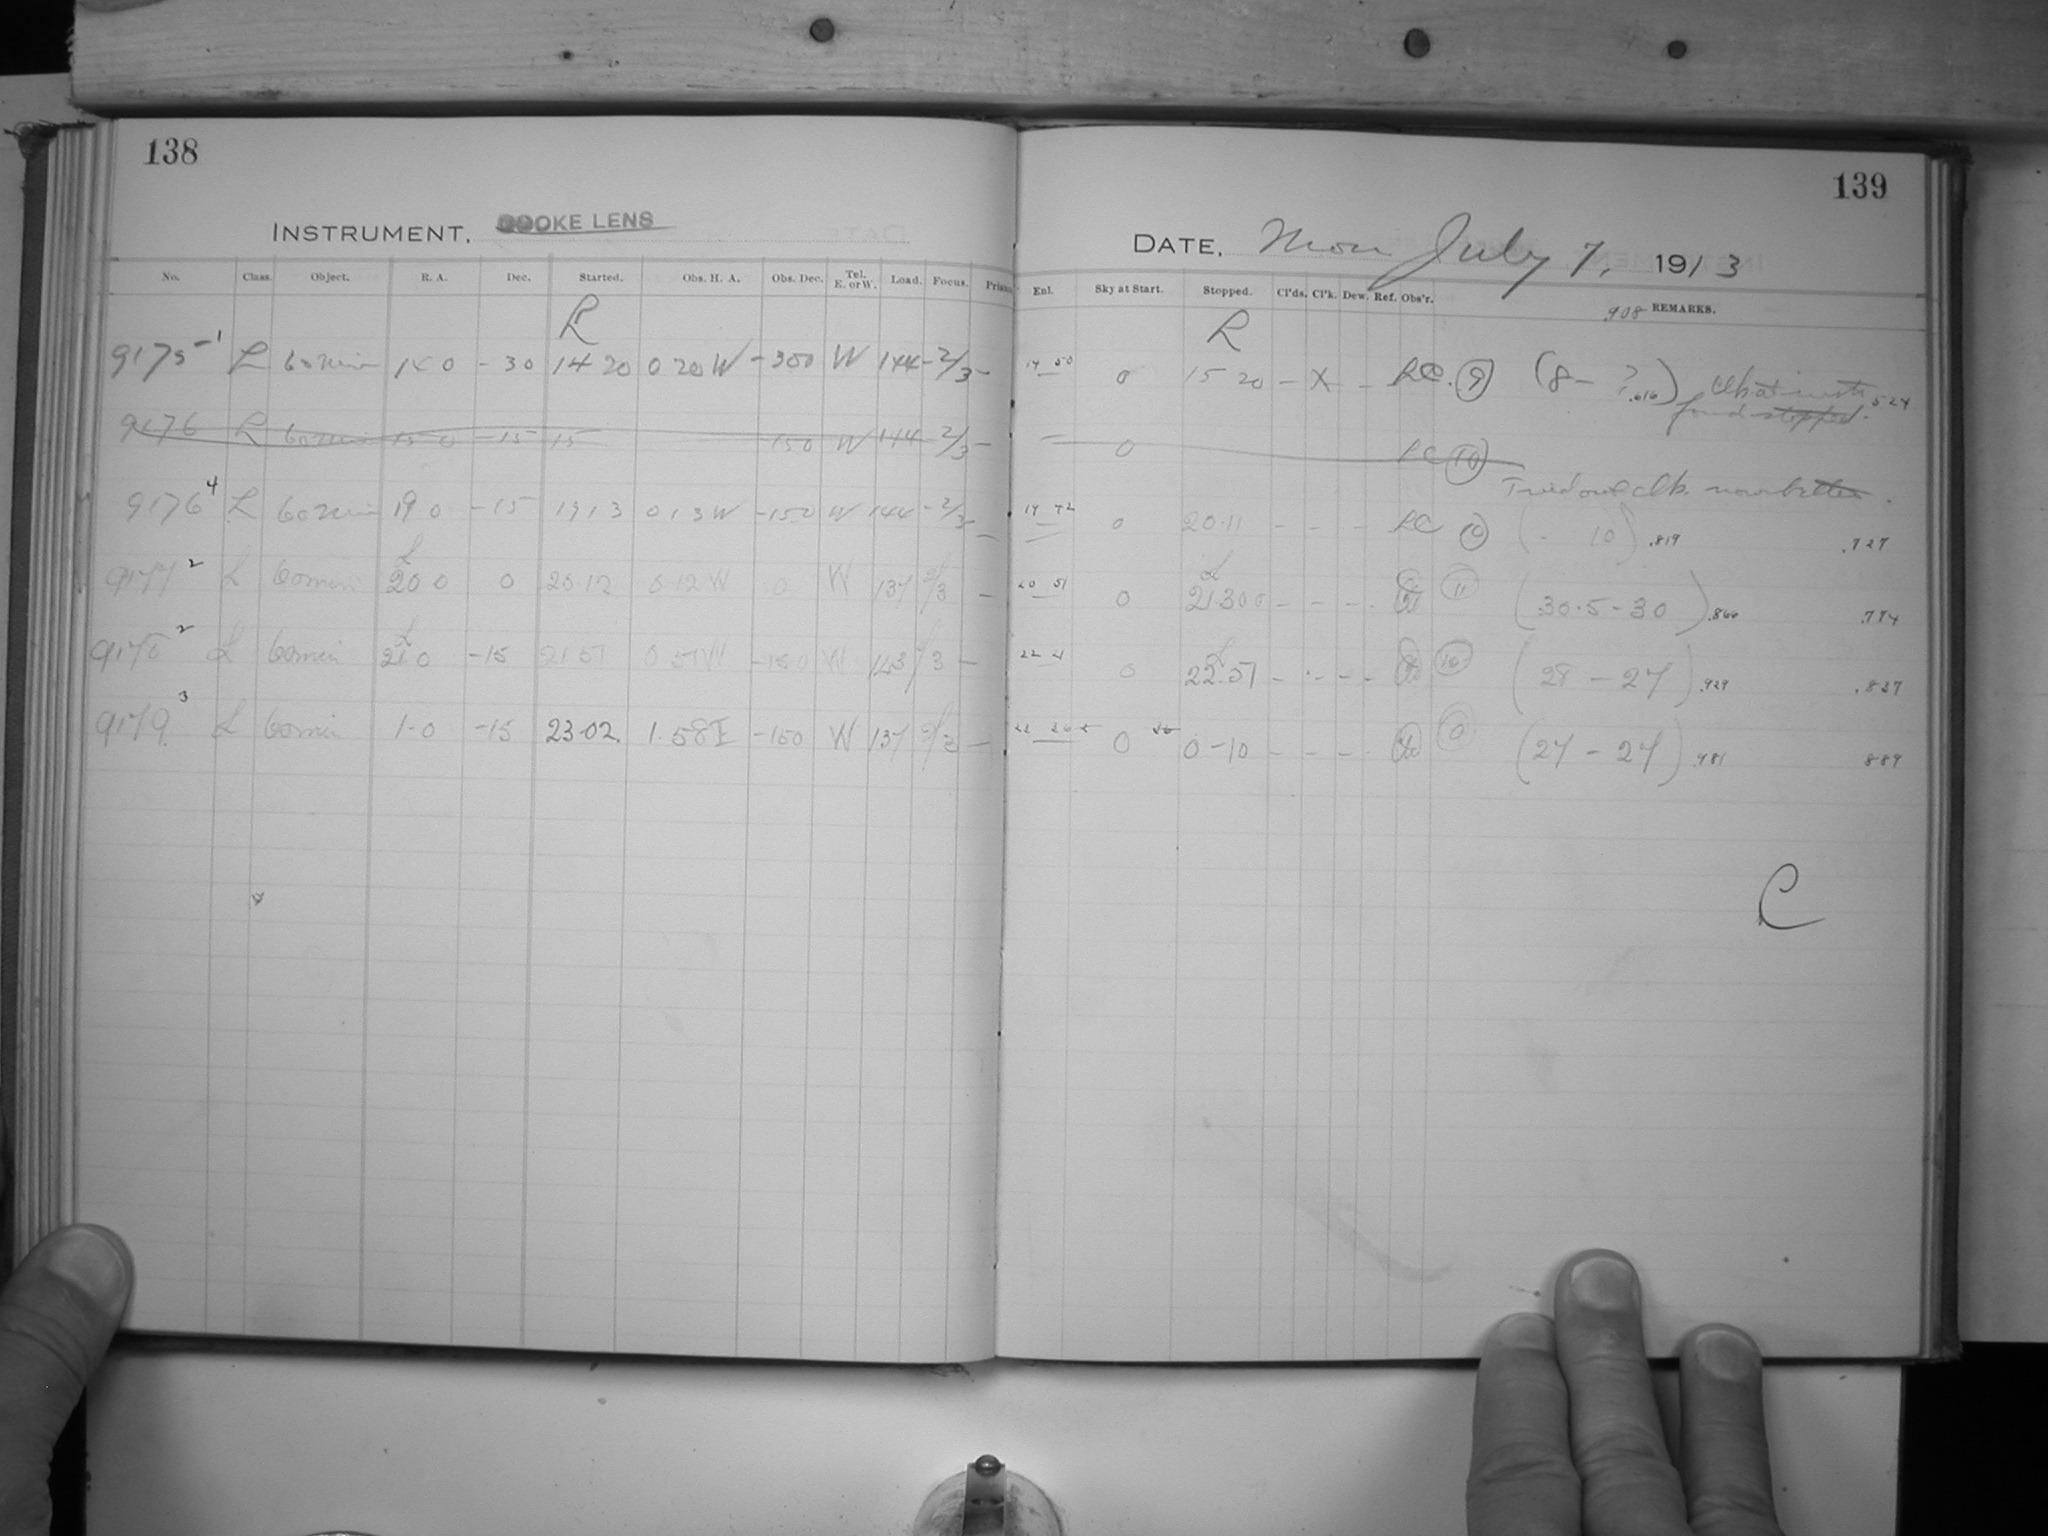 138
INSTRUMENT, COOKE LENS
No. Class. Object. R. A. Dec. Started. Obs. H. A. Obs. Dec. Tel. E. or W. Load. Focus.
R
9175 -1 L 60 min 14 0 -30 14 20 0 20 W -300 W 144 -2/3 -
9176 L 60 min 15 0 -15 15 150 W 144 -2/3 -
9176 4 L 60 min 19 0 -15 1913 0 13 W -150 W 144 -2/3 -
9177 2 L 60 min 20 0 0 20.12 0.12 W 0 W 137 2/3 -
9178 2 L 60 min 21 0 -15 21 51 0 51 W -150 W 143 3 -
9179 3 L 60 min 1-0 -15 23.02 1.58 E -150 W 137 2/3 -
139
DATE, Mon July 7, 1913
Enl. Sky at Start. Stopped. Cl'ds. Cl'k. Dew. Ref. Obs'r. REMARKS.
.908
R
50 0 15 20 - X - 9 (8 - ? .616) .524
0 10
Tried out clk. now better.
0 20.11 - - - 10 ( - 10) .819 .727
20 51 0 21.30 0 - - - 11 (30.5 - 30) .866 .774
0 22.51 - - - - 10 (28 - 27) .929 .837
0 0-10 - - - - 9 (27 - 27) .981 .889
C